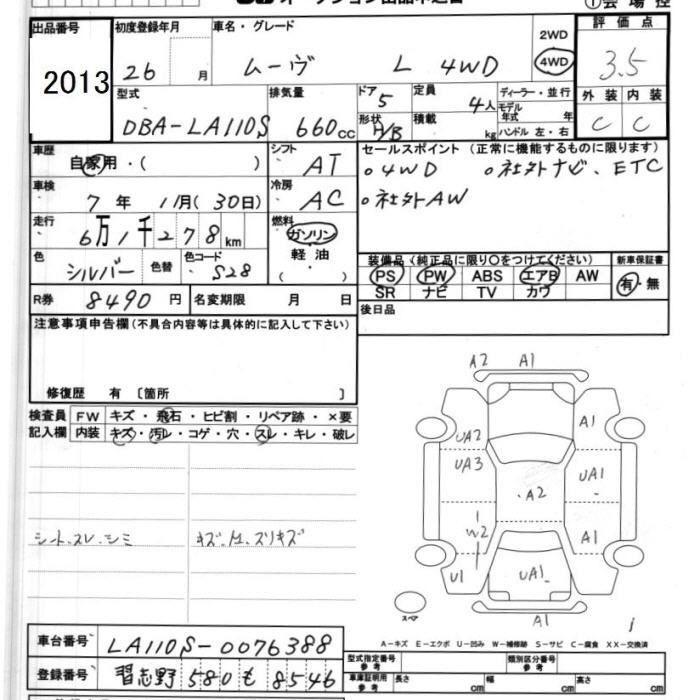 ①会場控
出品番号 初度登録年月 車名・グレード 評価点
2013 26 月 ムーヴ L 4WD 2WD 4WD 3.5
型式 排気量 ドア 5 定員 4人 ディーラー・並行 外装 内装
DBA-LA110S 660cc 形状 H/B 積載 kg モデル年式 年 ハンドル 左・右 C C
車歴 自家用・( ) シフト AT セールスポイント (正常に機能するものに限ります)
○4WD ○社外ナビ、ETC
車検 7年 11月(30日) 冷房 AC ○社外AW
走行 6万1千278km 燃料 ガソリン
軽油
( ・ )
色 シルバー 色替 色コード S28
装備品(純正品に限り○をつけてください) 新車保証書
PS PW ABS エアB AW 有・無
SR ナビ TV カワ
R券 8490円 名変期限 月 日
後日品
注意事項申告欄(不具合内容等は具体的に記入して下さい)
修復歴 有 〔箇所 〕
検査員 FW キズ・飛石・ヒビ割・リペア跡・×要
記入欄 内装 キズ・汚レ・コゲ・穴・スレ・キレ・破レ
シート.スレ.シミ
A2 A1
A1
UA2
UA3 UA1
A2
W2 A1
U1 UA1
スペア A1
A-キズ E-エクボ U-凹み W-補修跡 S-サビ C-腐食 XX-交換済
車台番号 LA110S-0076388
登録番号 習志野 580 も 8546
型式指定番号 参考 類別区分番号 参考
車庫証明用 参考 長さ cm 幅 cm 高さ cm